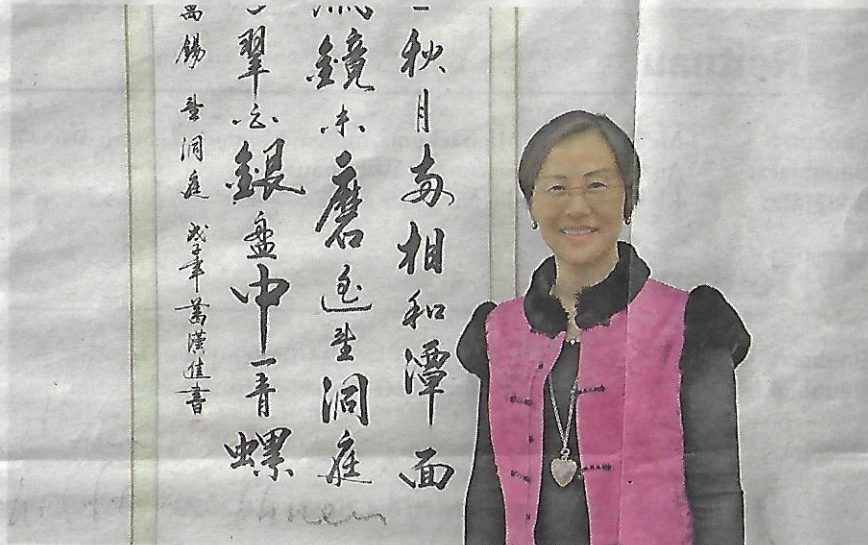 秋月兩相和潭面
風鏡未磨遙望洞庭
翠白銀盤中一青螺
禹錫 望洞庭 戊子年 漢佳書